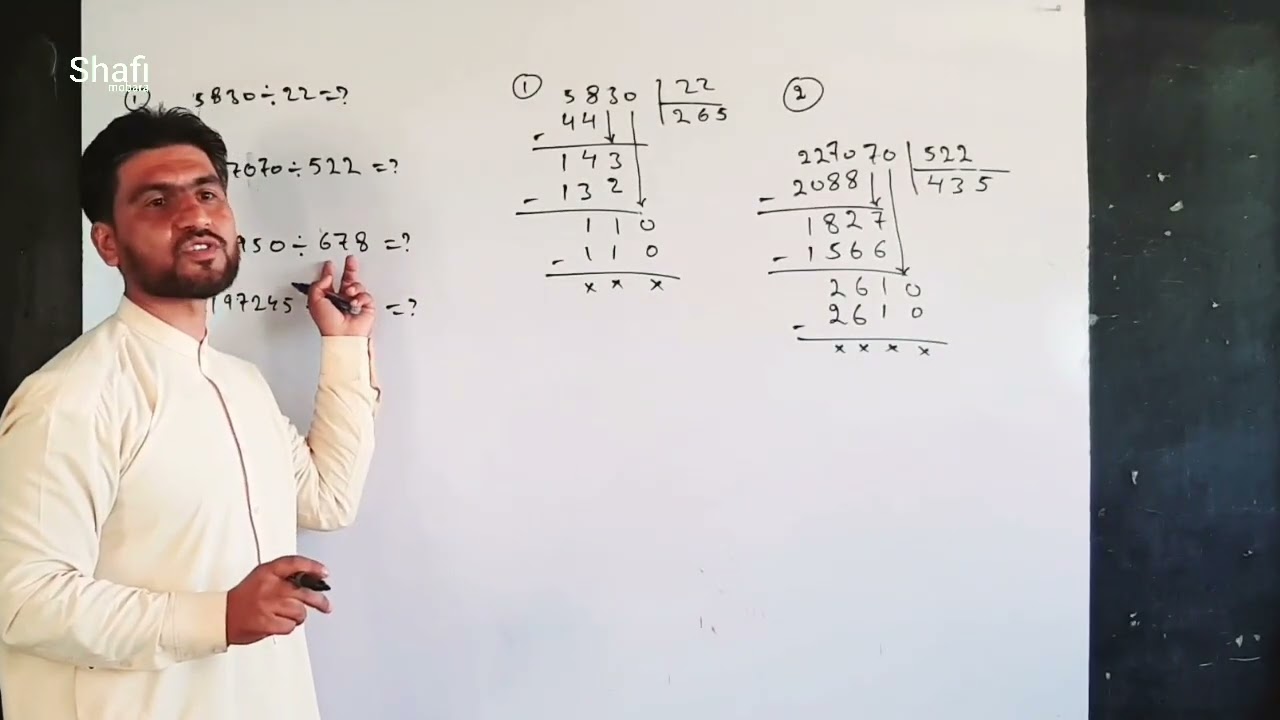 Shafi
mobara
1 5830÷22=?
7070÷522=?
950÷678=?
197245 =?
1
5830 22
44 265
- 143
132
- 110
110
- × × ×
2
227070 522
2088 435
- 1827
1566
- 2610
2610
- × × × ×